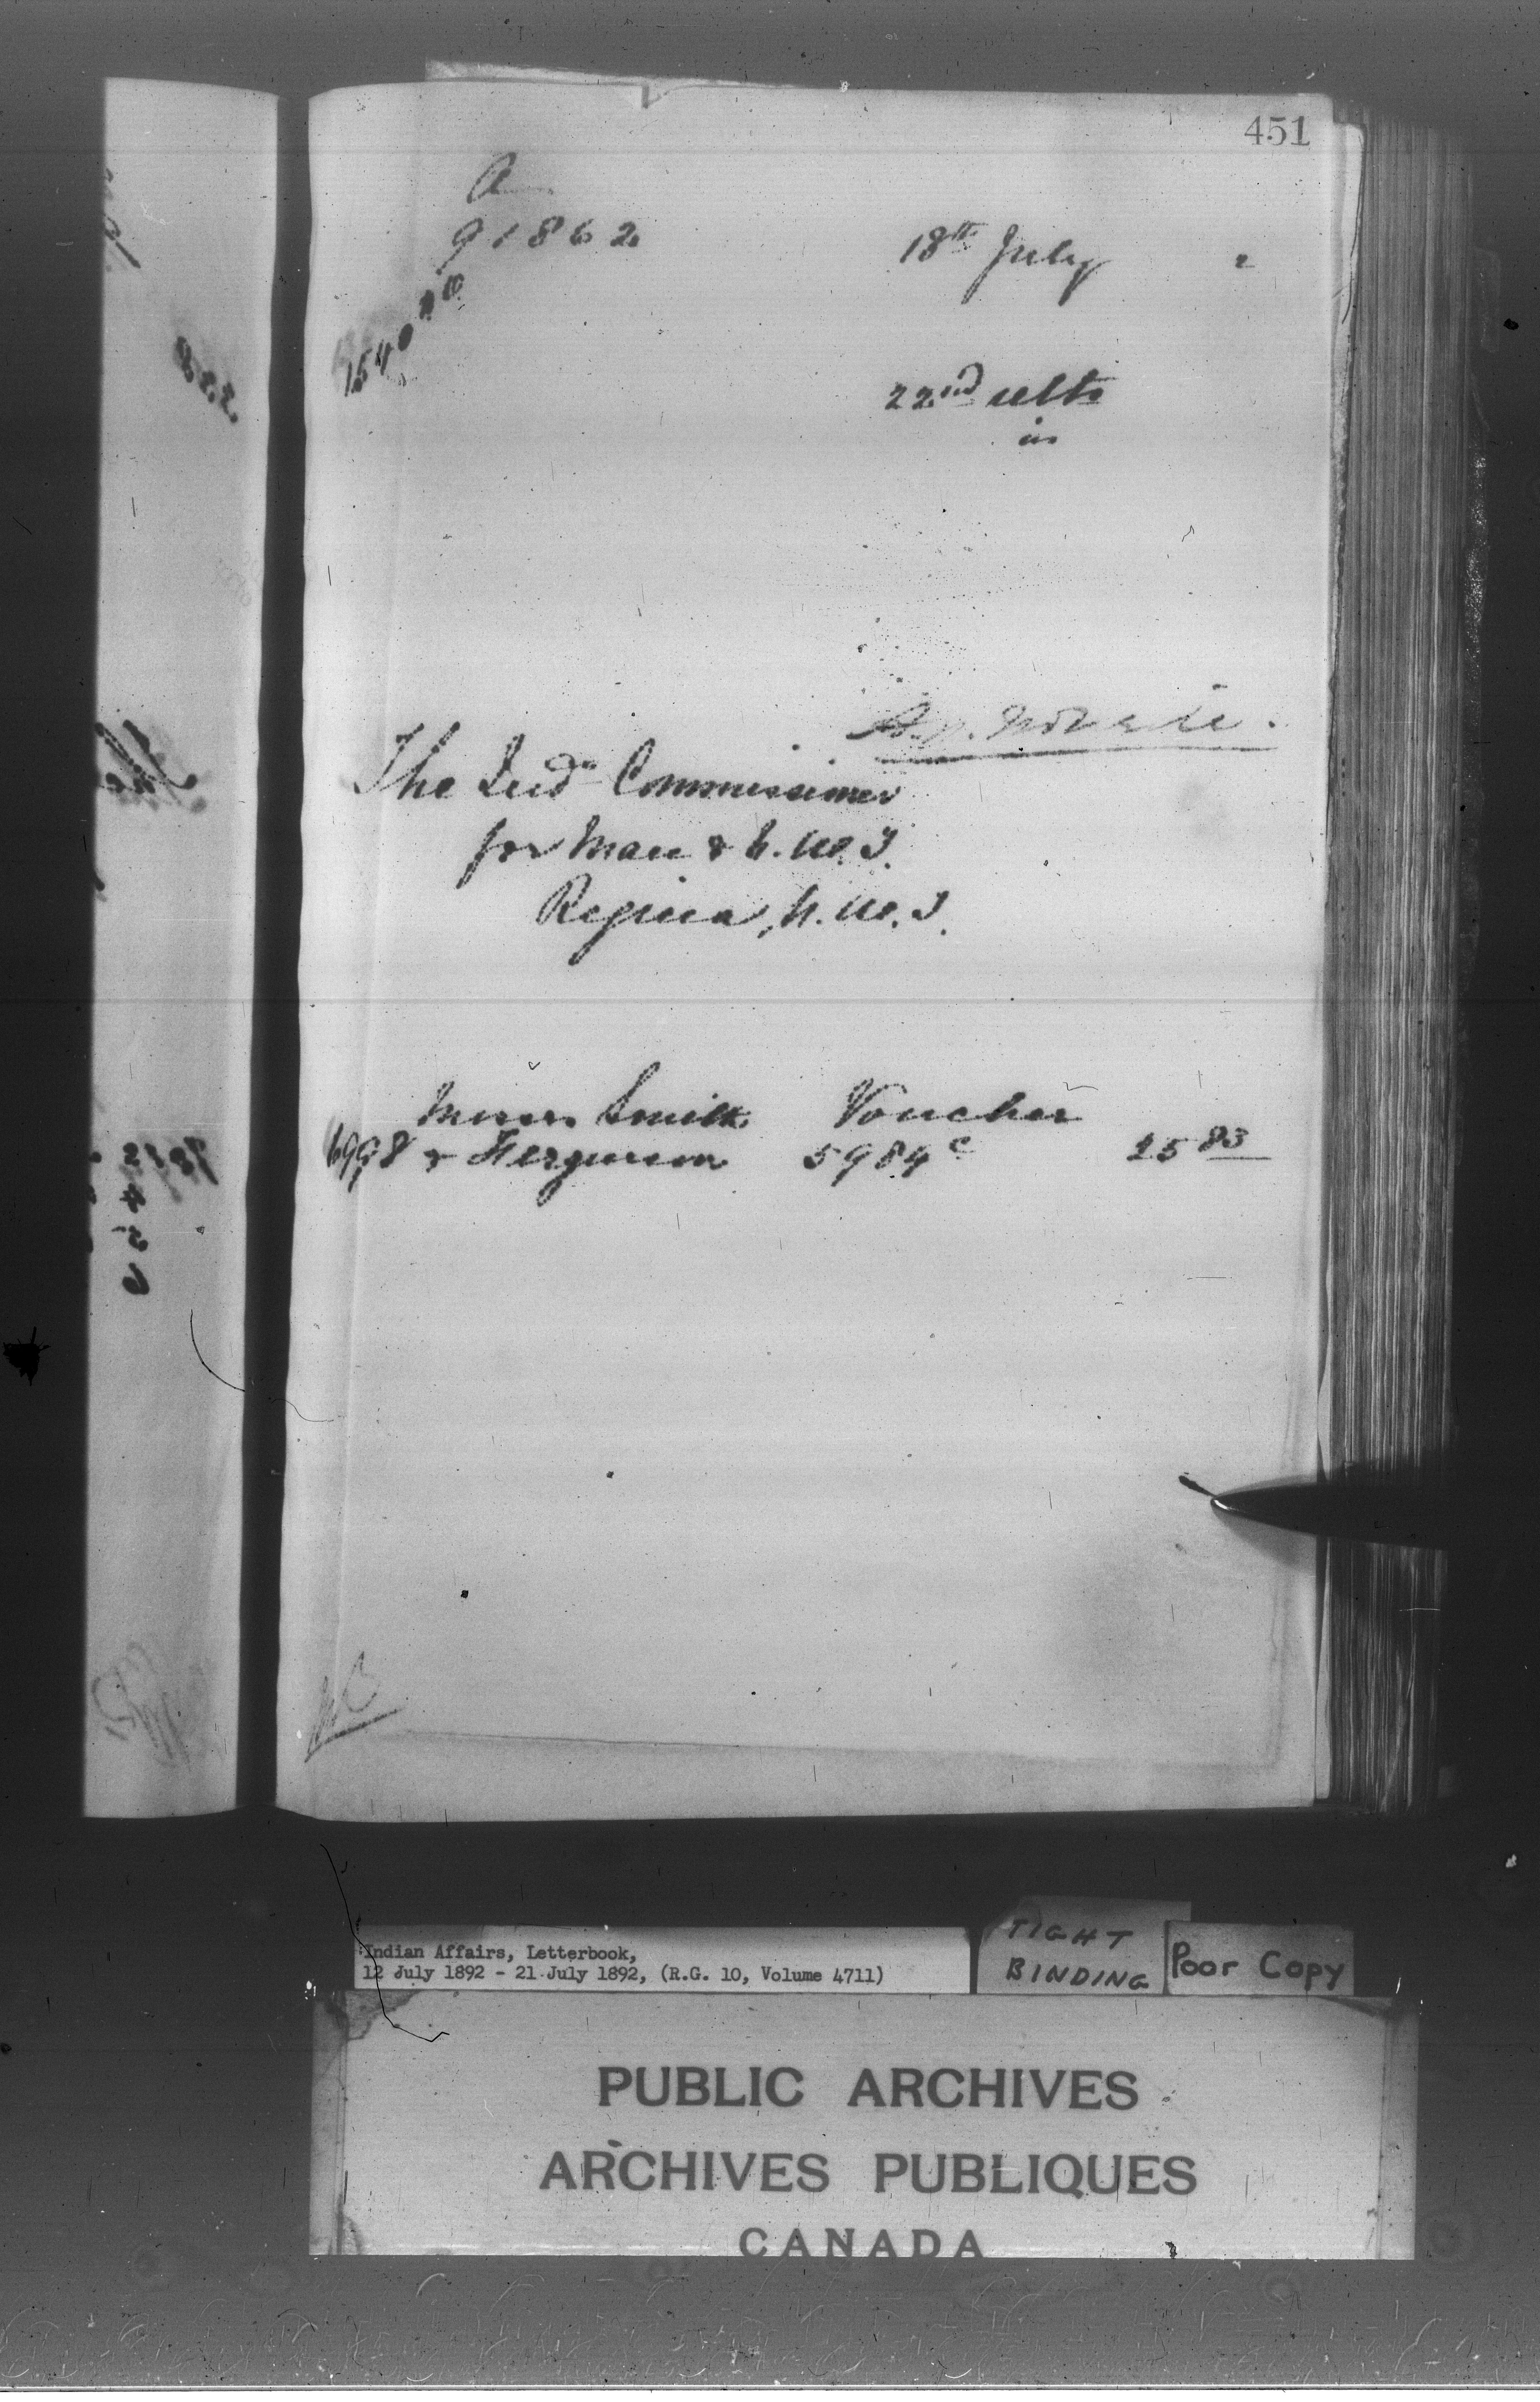 451
A
91862
18th July 2
22nd ulto
in
The Ind Commissioner
for Man & N.W.T.
Regina, N.W.T.
Messrs Smith Voucher
6998 & Ferguson 5984c 25 83
Indian Affairs, Letterbook,
12 July 1892 - 21 July 1892, (R.G. 10, Volume 4711)
TIGHT
BINDING
Poor Copy
PUBLIC ARCHIVES
ARCHIVES PUBLIQUES
CANADA